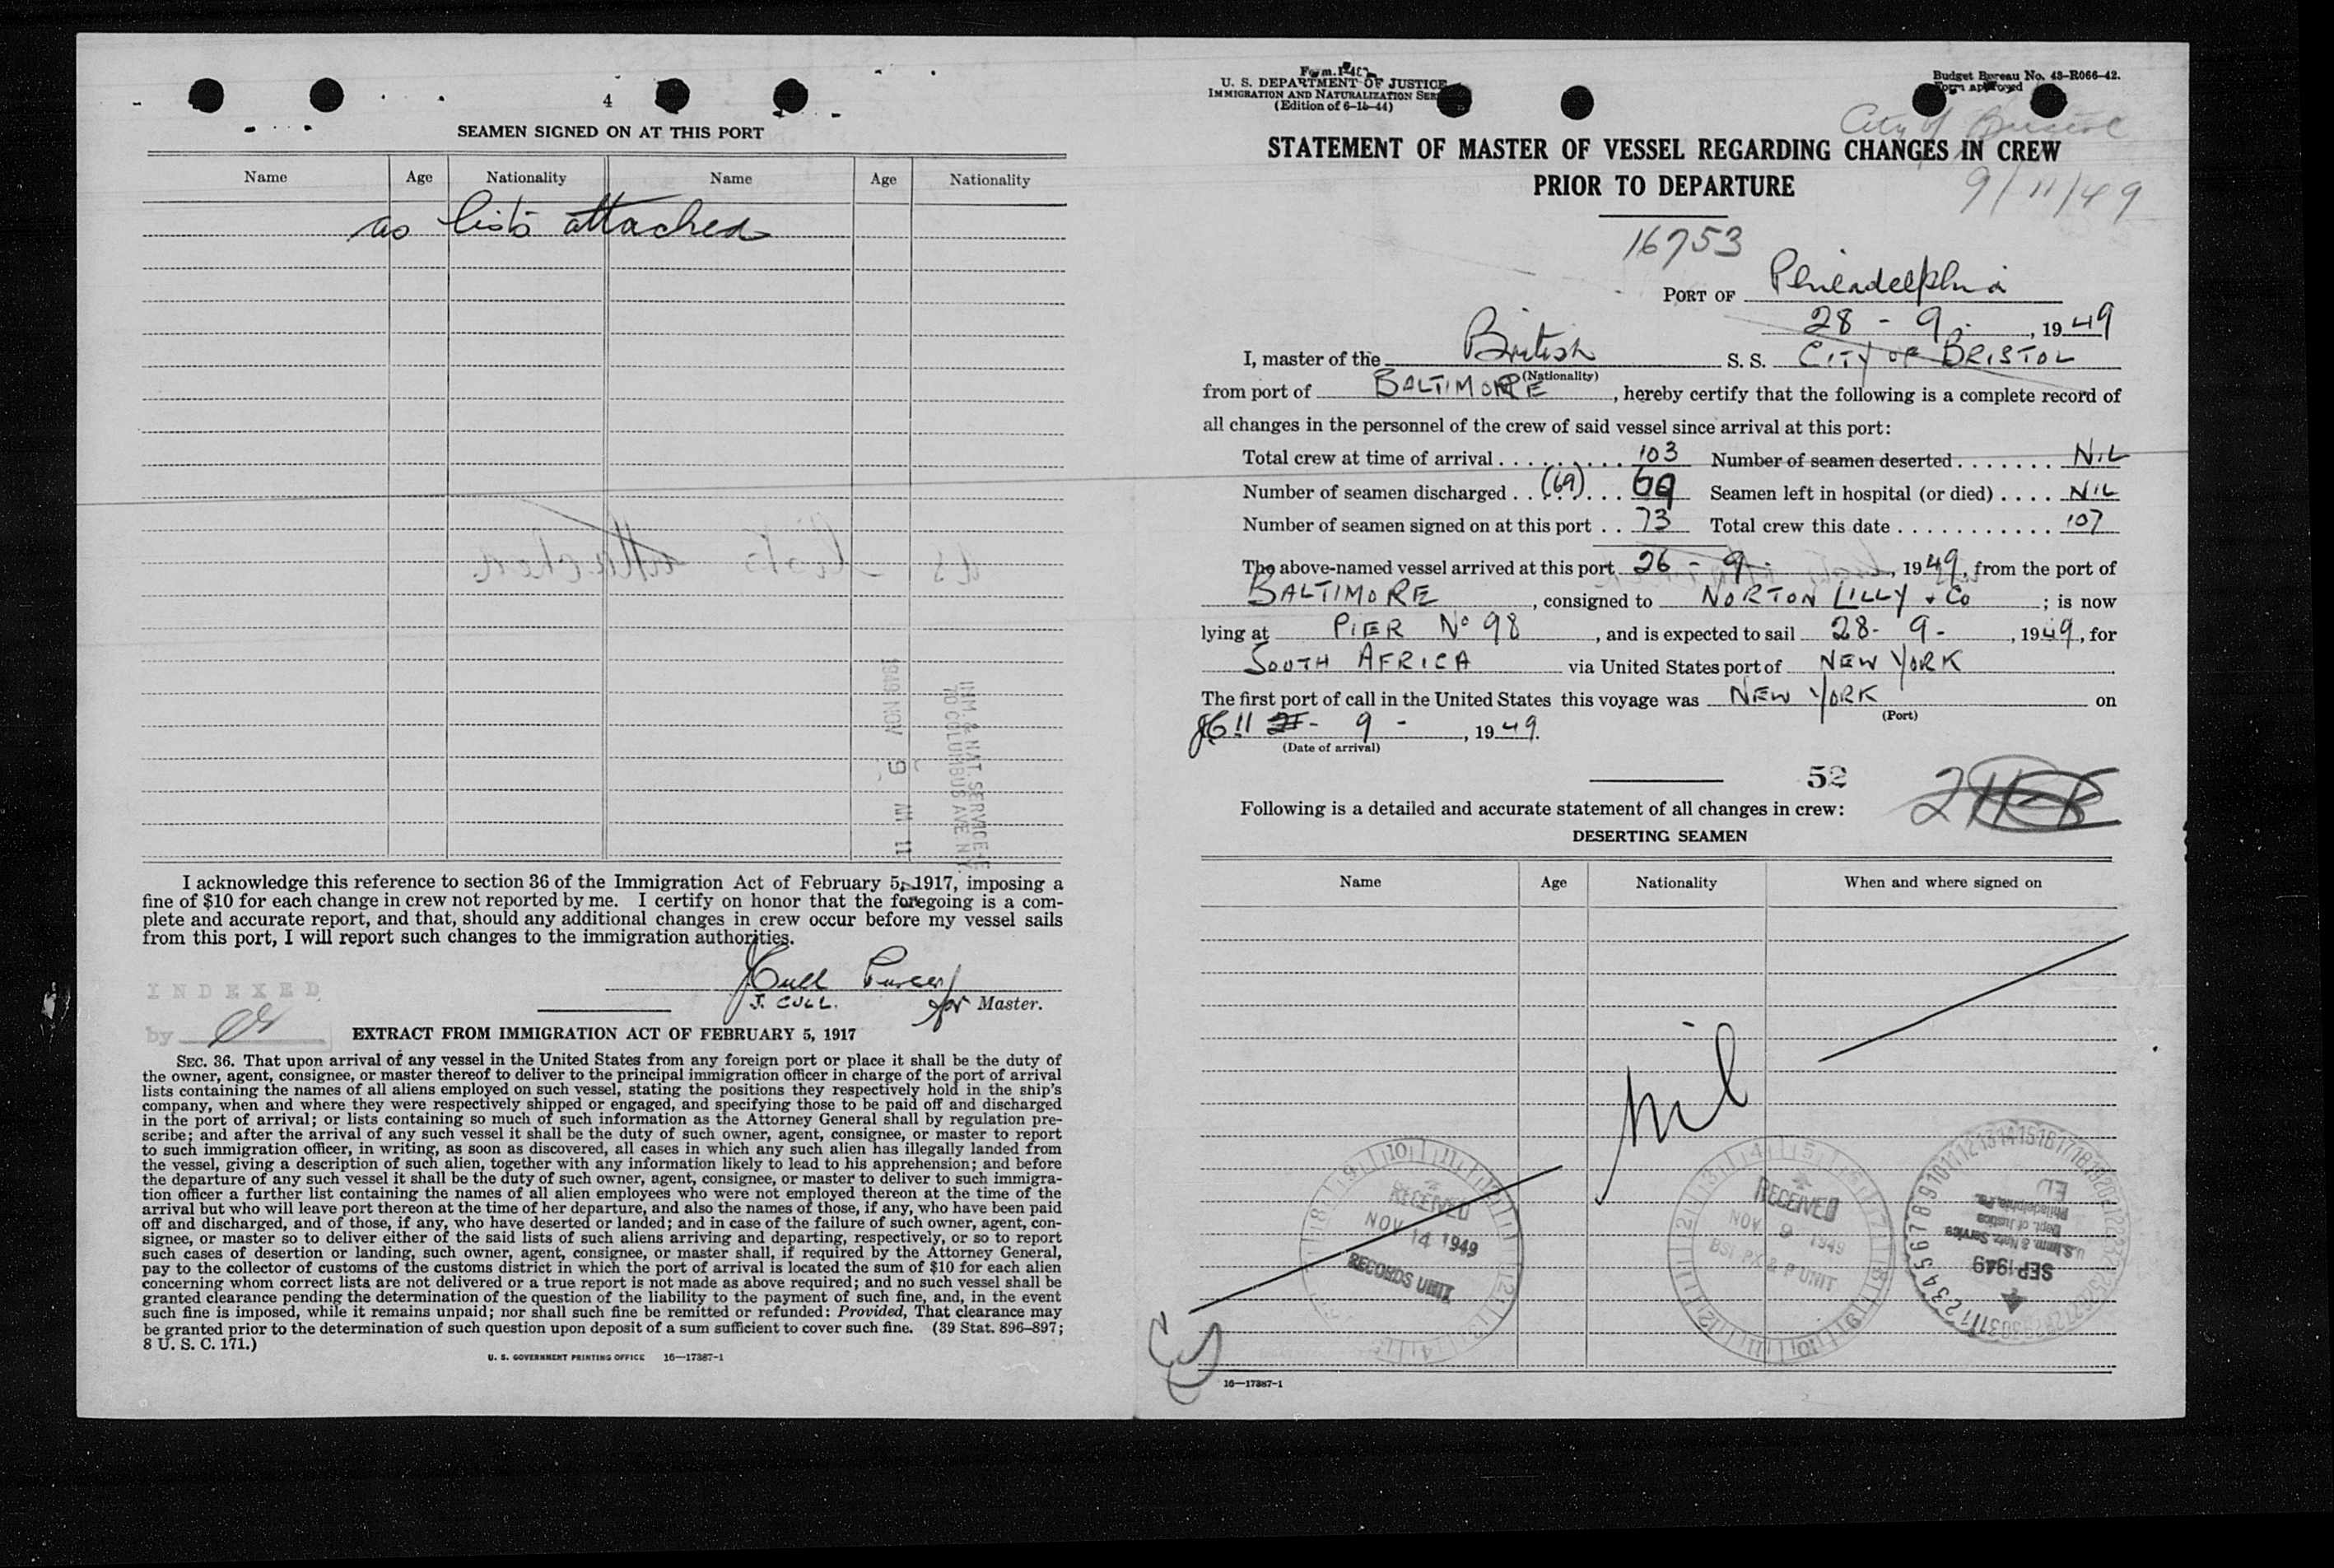 4
SEAMEN SIGNED ON AT THIS PORT
Name Age Nationality Name Age Nationality
as lists attached
IMM & NAT. SERVICE
70 COLUMBUS AVE N.Y.
1949 NOV 9 AM 11
I acknowledge this reference to section 36 of the Immigration Act of February 5, 1917, imposing a
fine of $10 for each change in crew not reported by me. I certify on honor that the foregoing is a com-
plete and accurate report, and that, should any additional changes in crew occur before my vessel sails
from this port, I will report such changes to the immigration authorities.
JCull Purser
J. CULL. for Master.
INDEXED
by
EXTRACT FROM IMMIGRATION ACT OF FEBRUARY 5, 1917
SEC. 36. That upon arrival of any vessel in the United States from any foreign port or place it shall be the duty of
the owner, agent, consignee, or master thereof to deliver to the principal immigration officer in charge of the port of arrival
lists containing the names of all aliens employed on such vessel, stating the positions they respectively hold in the ship's
company, when and where they were respectively shipped or engaged, and specifying those to be paid off and discharged
in the port of arrival; or lists containing so much of such information as the Attorney General shall by regulation pre-
scribe; and after the arrival of any such vessel it shall be the duty of such owner, agent, consignee, or master to report
to such immigration officer, in writing, as soon as discovered, all cases in which any such alien has illegally landed from
the vessel, giving a description of such alien, together with any information likely to lead to his apprehension; and before
the departure of any such vessel it shall be the duty of such owner, agent, consignee, or master to deliver to such immigra-
tion officer a further list containing the names of all alien employees who were not employed thereon at the time of the
arrival but who will leave port thereon at the time of her departure, and also the names of those, if any, who have been paid
off and discharged, and of those, if any, who have deserted or landed; and in case of the failure of such owner, agent, con-
signee, or master so to deliver either of the said lists of such aliens arriving and departing, respectively, or so to report
such cases of desertion or landing, such owner, agent, consignee, or master shall, if required by the Attorney General,
pay to the collector of customs of the customs district in which the port of arrival is located the sum of $10 for each alien
concerning whom correct lists are not delivered or a true report is not made as above required; and no such vessel shall be
granted clearance pending the determination of the question of the liability to the payment of such fine, and, in the event
such fine is imposed, while it remains unpaid; nor shall such fine be remitted or refunded: Provided, That clearance may
be granted prior to the determination of such question upon deposit of a sum sufficient to cover such fine. (39 Stat. 896–897;
8 U. S. C. 171.)
U. S. GOVERNMENT PRINTING OFFICE 16—17387-1
U. S. DEPARTMENT OF JUSTICE
IMMIGRATION AND NATURALIZATION
(Edition of 6-15-44)
Budget Bureau No. 43-R066-42.
Form approved
City of Bristol
STATEMENT OF MASTER OF VESSEL REGARDING CHANGES IN CREW
PRIOR TO DEPARTURE
9/11/49
16753
PORT OF Philadelphia
28 - 9. , 1949
I, master of the British S. S. CITY OF BRISTOL
(Nationality)
from port of BALTIMORE , hereby certify that the following is a complete record of
all changes in the personnel of the crew of said vessel since arrival at this port:
Total crew at time of arrival 103 Number of seamen deserted NIL
Number of seamen discharged (69) 69 Seamen left in hospital (or died) NIL
Number of seamen signed on at this port 73 Total crew this date 107
The above-named vessel arrived at this port 26 - 9 - , 1949, from the port of
BALTIMORE , consigned to NORTON LILLY & Co ; is now
lying at PIER No 98 , and is expected to sail 28 - 9 - , 1949, for
SOUTH AFRICA via United States port of NEW YORK
The first port of call in the United States this voyage was NEW YORK on
(Port)
11 - 9 - , 1949.
(Date of arrival)
52
Following is a detailed and accurate statement of all changes in crew:
DESERTING SEAMEN
Name Age Nationality When and where signed on
nil
RECEIVED
NOV 14 1949
RECORDS UNIT
RECEIVED
NOV 9 1949
BSI PX & P UNIT
U.S. Imm. & Natz Service
Dept. of Justice
Philadelphia, Pa.
SEP 1949
16—17387-1